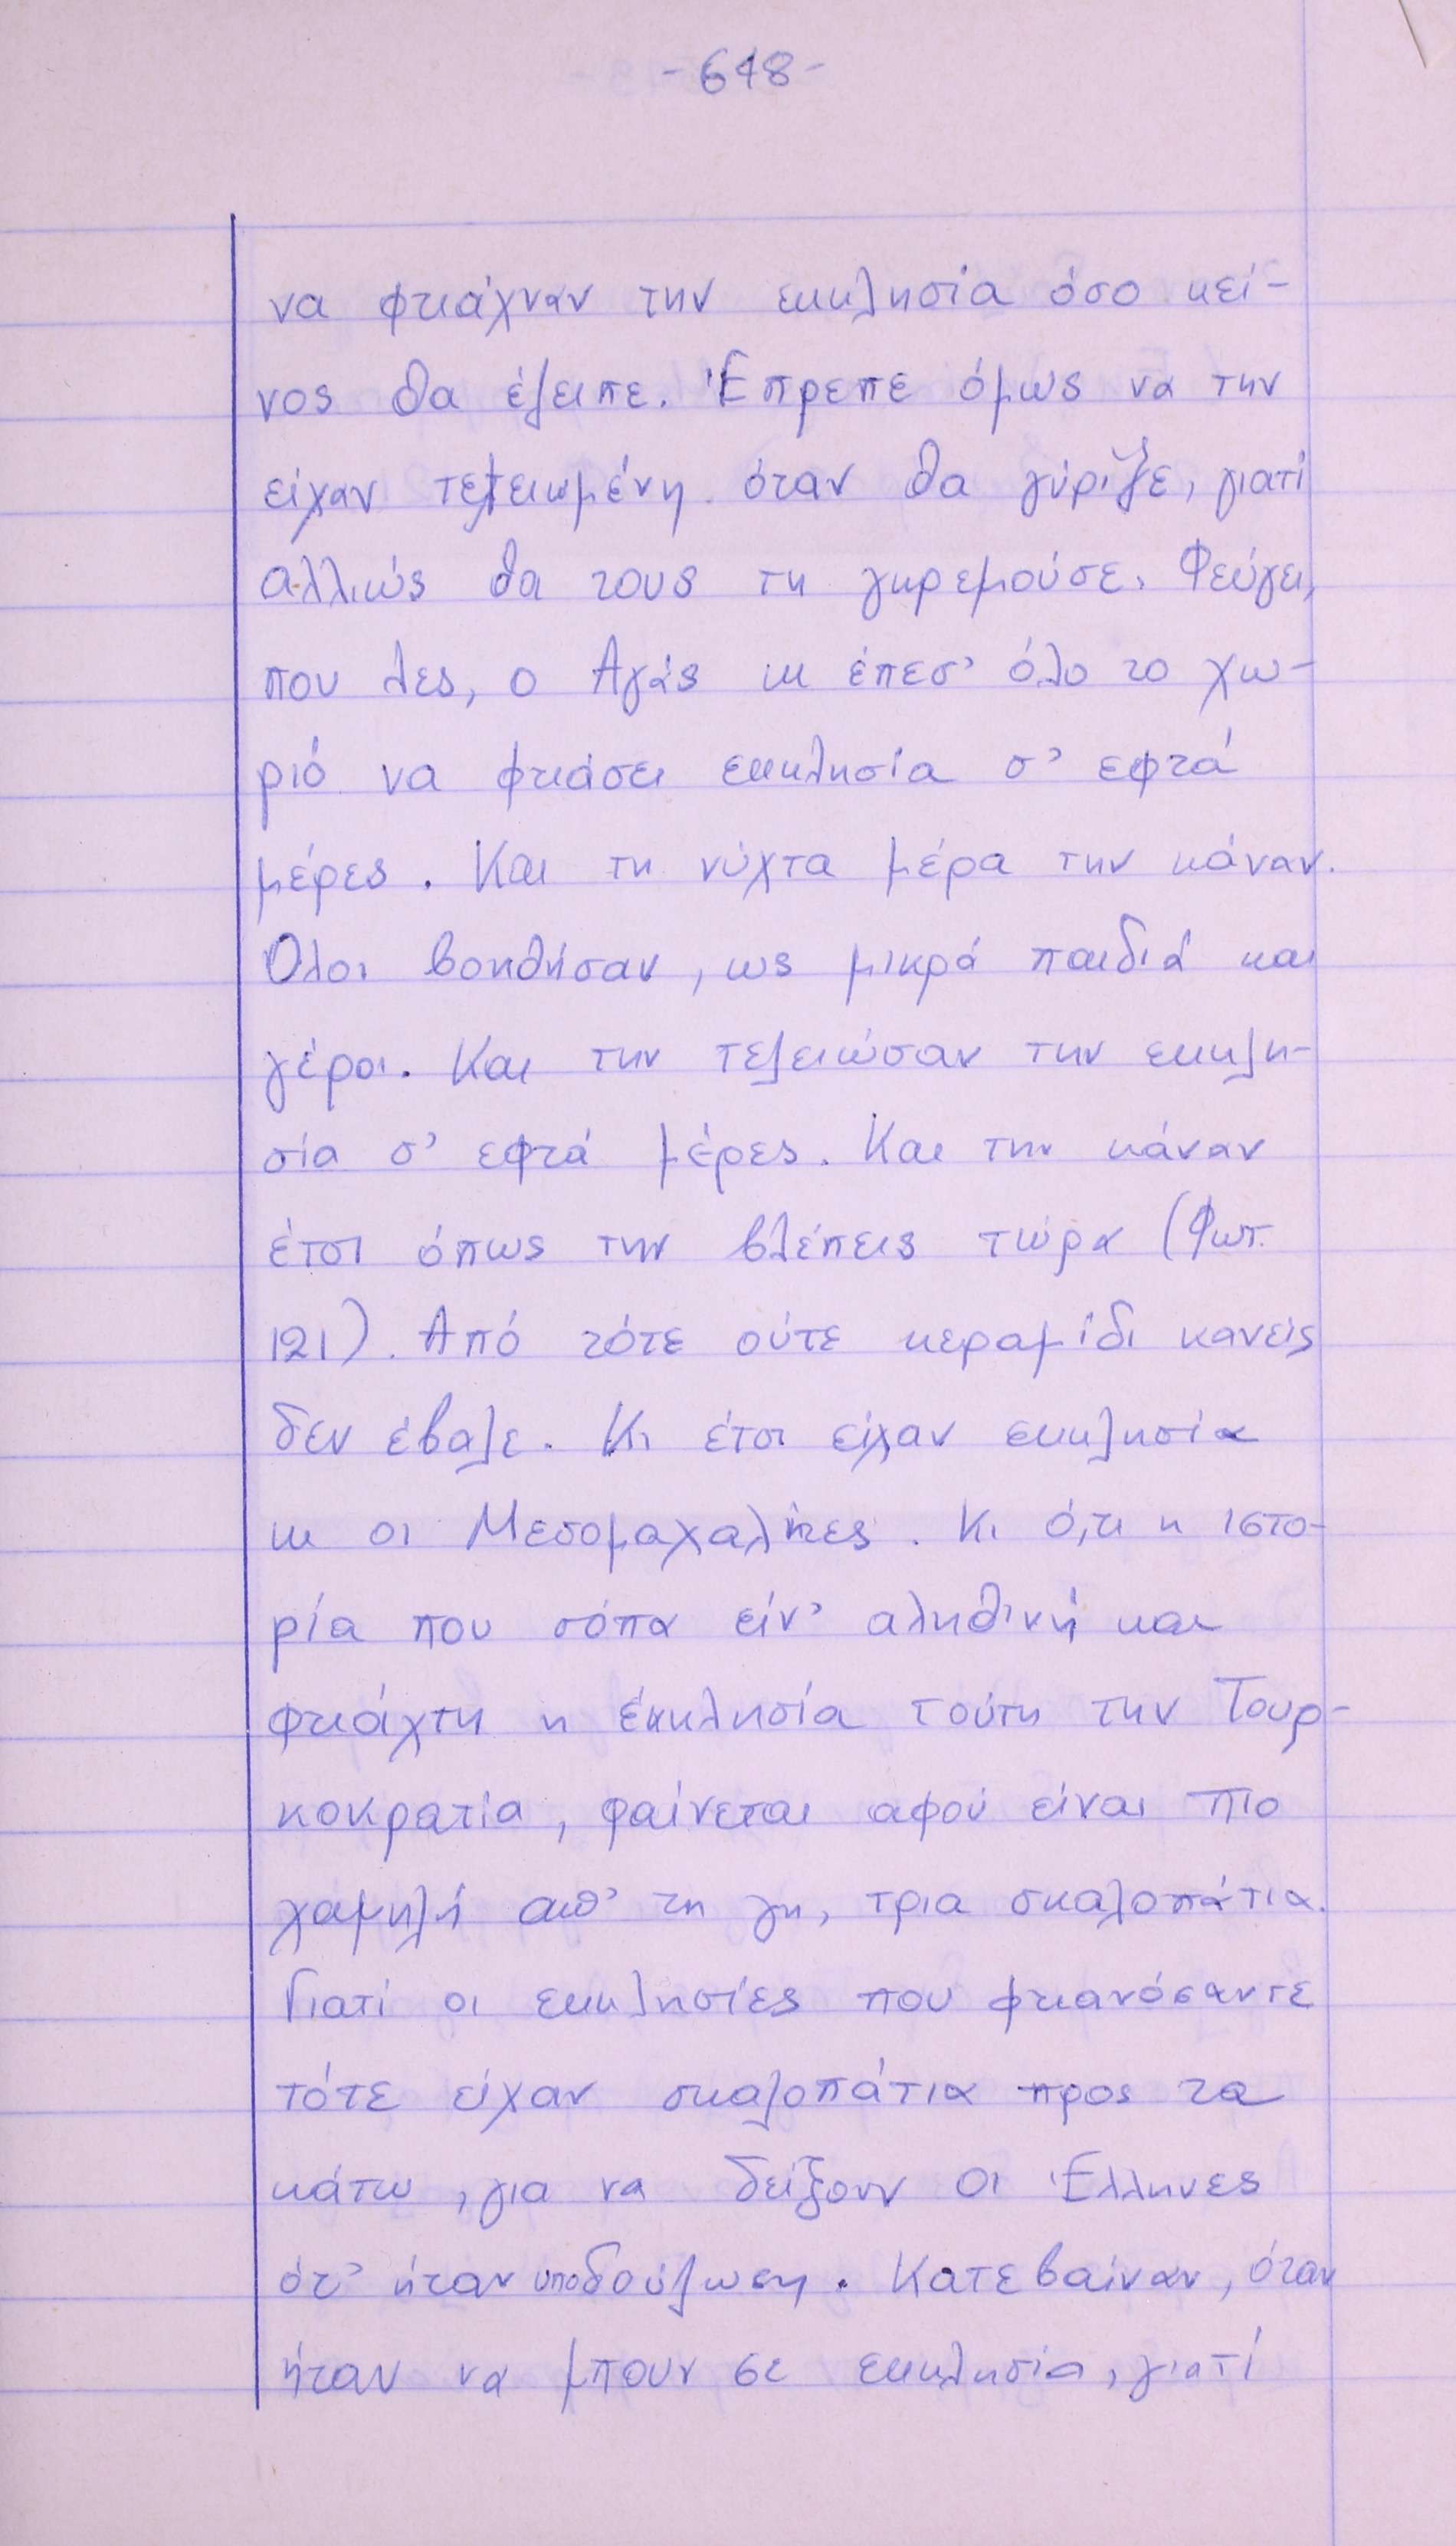 -648-
να φτιάχναν την εκκλησία όσο κεί-
νος θα έλειπε. Έπρεπε όμως να την
είχαν τελειωμένη όταν θα γύριζε, γιατί
αλλιώς θα τους τη γκρεμούσε. Φεύγει,
που λες, ο Αγάς κι έπεσ' όλο το χω-
ριό να φτιάσει εκκλησία σ' εφτά
μέρες. Και τη νύχτα μέρα την κάναν.
Όλοι βοηθήσαν, ως μικρά παιδιά και
γέροι. Και την τελειώσαν την εκκλη-
σία σ' εφτά μέρες. Και την κάναν
έτσι όπως την βλέπεις τώρα (Φωτ.
121). Από τότε ούτε κεραμίδι κανείς
δεν έβαλε. Κι έτσι είχαν εκκλησία
κι οι Μεσομαχαλίτες. Κι ό,τι η ιστο-
ρία που σόπα είν' αληθινή και
φτιάχτη η εκκλησία τούτη την Τουρ-
κοκρατία, φαίνεται αφού είναι πιο
χαμηλή απ' τη γη, τρια σκαλοπάτια.
Γιατί οι εκκλησίες που φτιανόσαντε
τότε είχαν σκαλοπάτια προς τα
κάτω, για να δείξουν οι Έλληνες
ότ' ήταν υποδούλωση. Κατεβαίναν, όταν
ήταν να μπουν σε εκκλησία, γιατί